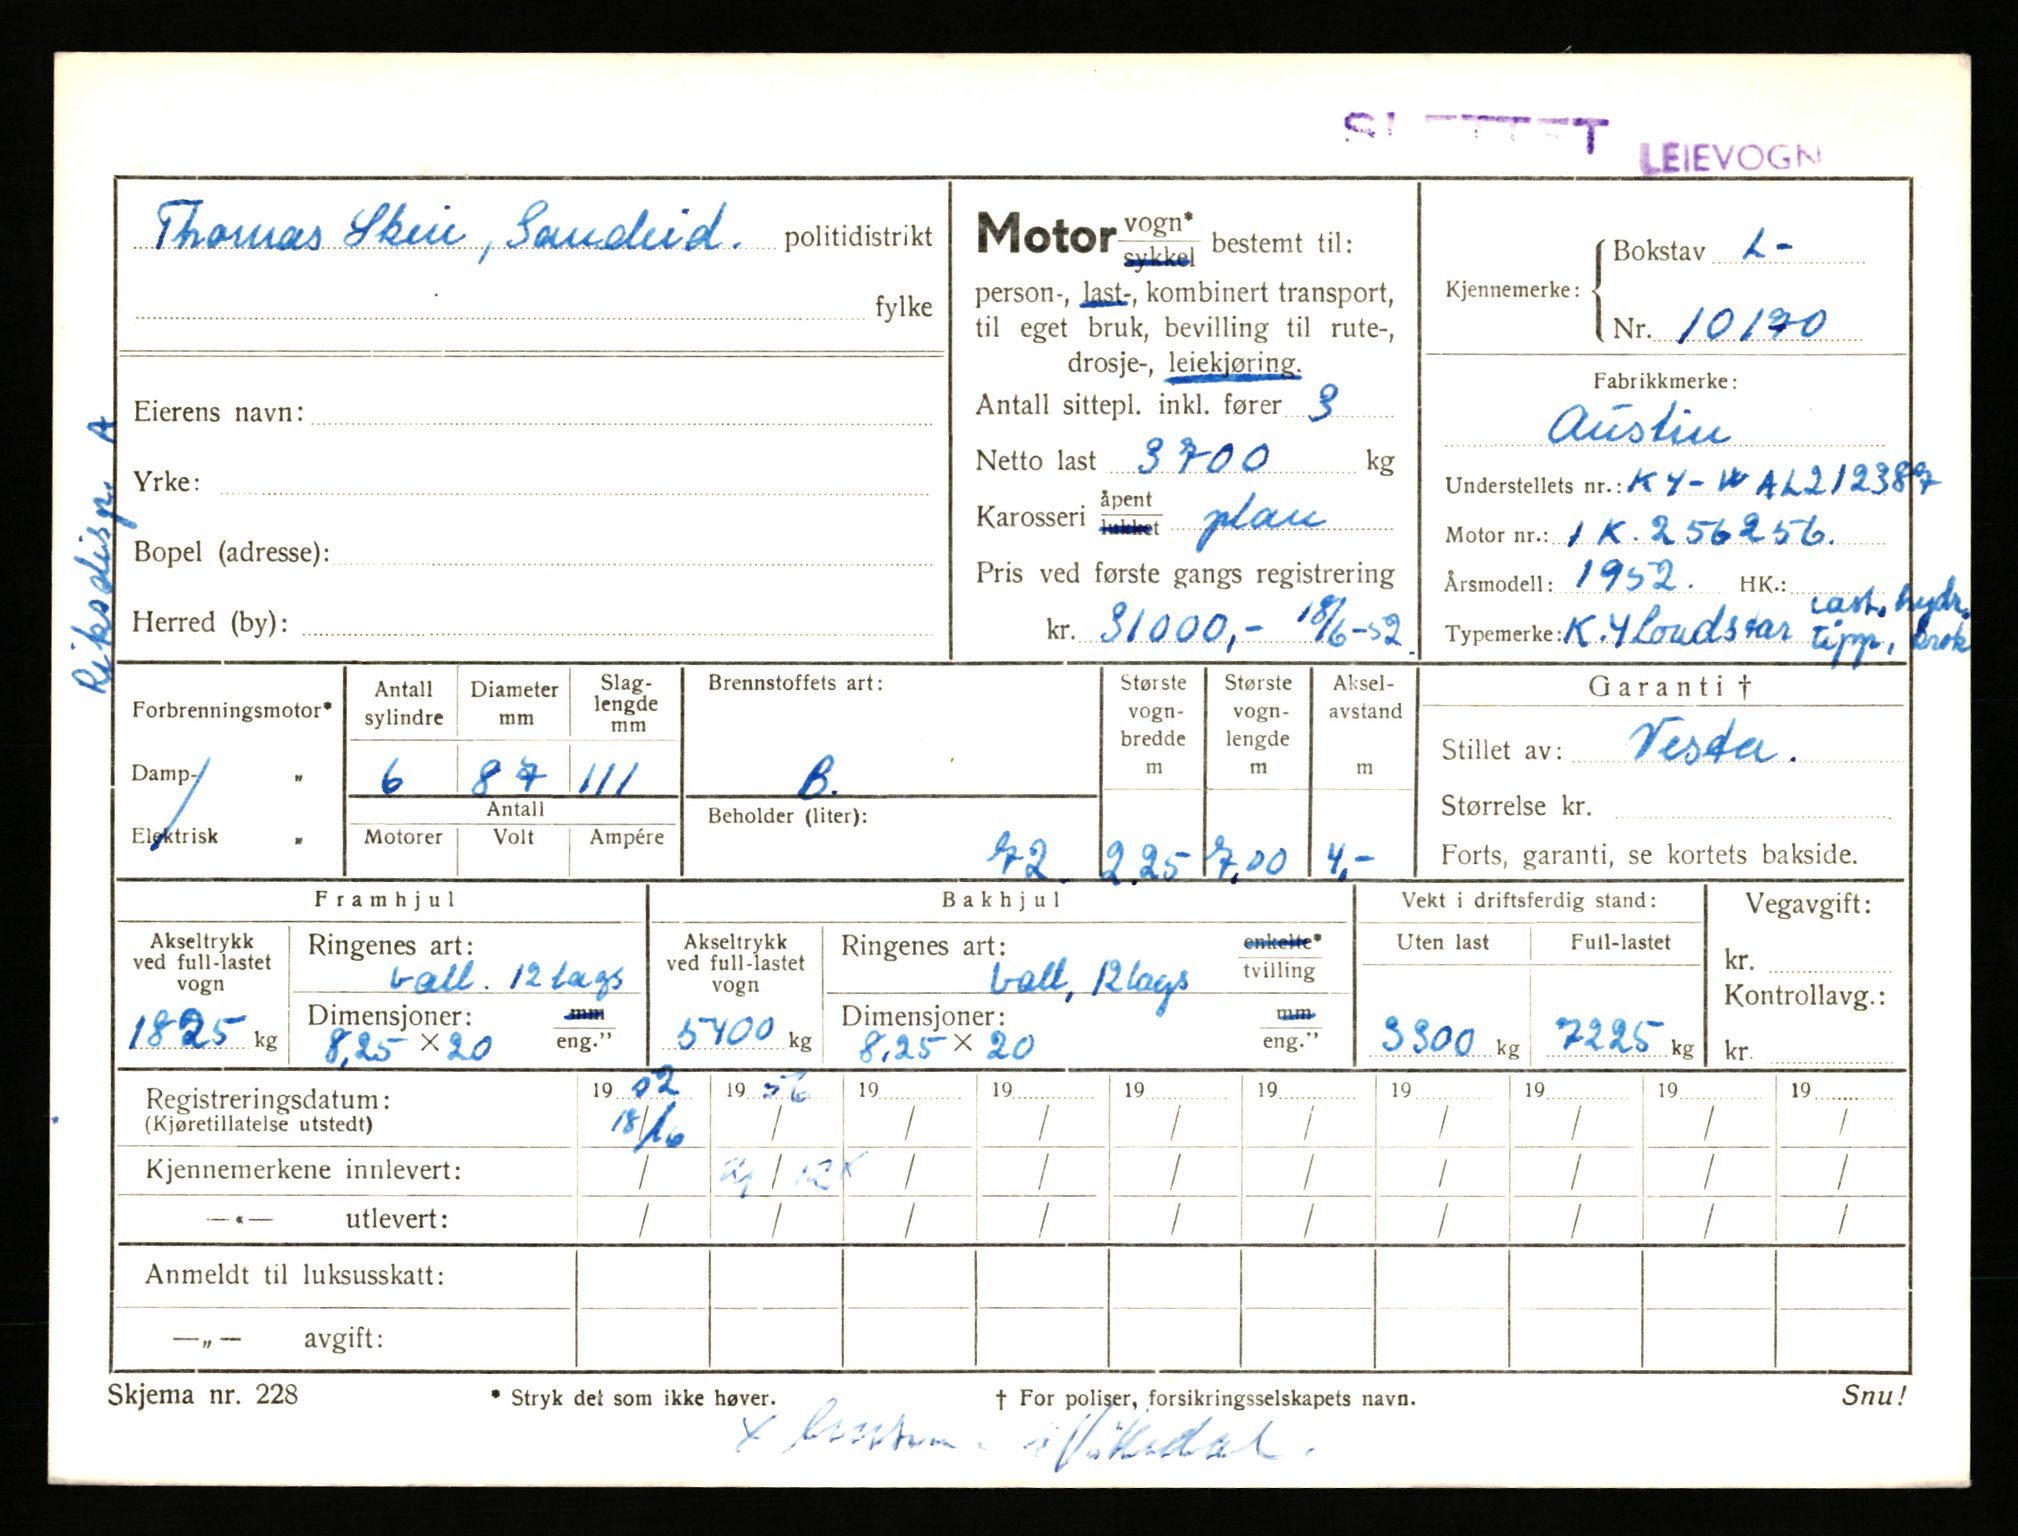 SLETTET
LEIEVOGN
Thomas Skeie, Sandeid. politidistrikt
fylke
Eierens navn:
Yrke:
Bopel (adresse):
Herred (by):
Riksdisp. A
Motor vogn* sykkel bestemt til:
person-, last-, kombinert transport,
til eget bruk, bevilling til rute-,
drosje-, leiekjøring.
Antall sittepl. inkl. fører 3
Netto last 3700 kg
Karosseri åpent lukket plan
Pris ved første gangs registrering
kr. 31000,- 18/6-52.
Kjennemerke: Bokstav L-
Nr. 10170
Fabrikkmerke:
Austin
Understellets nr.: K4-WAL212387
Motor nr.: 1K.256256.
Årsmodell: 1952. HK.:
Typemerke: K.4 Loadstar last, hydr. tipp, krok
Forbrenningsmotor*
Damp- „
Elektrisk „
Antall sylindre Diameter mm Slaglengde mm
6 87 111
Antall
Motorer Volt Ampére
Brennstoffets art:
B.
Beholder (liter):
72
Største vognbredde m 2.25
Største vognlengde m 7,00
Akselavstand m 4,-
Garanti †
Stillet av: Vesta.
Størrelse kr.
Forts, garanti, se kortets bakside.
Framhjul
Akseltrykk ved full-lastet vogn 1825 kg
Ringenes art: ball. 12 lags
Dimensjoner: mm
8,25 × 20 eng.”
Bakhjul
Akseltrykk ved full-lastet vogn 5400 kg
Ringenes art: enkelte* tvilling
ball, 12 lags
Dimensjoner: mm
8,25 × 20 eng.”
Vekt i driftsferdig stand:
Uten last Full-lastet
3300 kg 7225 kg
Vegavgift:
kr.
Kontrollavg.:
kr.
Registreringsdatum: 19 52 19 56 19 19 19 19 19 19 19 19
(Kjøretillatelse utstedt) 18/6 / / / / / / / / /
Kjennemerkene innlevert: / / 12 x / / / / / / / /
—«— utlevert: / / / / / / / / / /
Anmeldt til luksusskatt:
—„— avgift:
Skjema nr. 228
* Stryk det som ikke høver.
† For poliser, forsikringsselskapets navn.
Snu!
x i Vikedal.